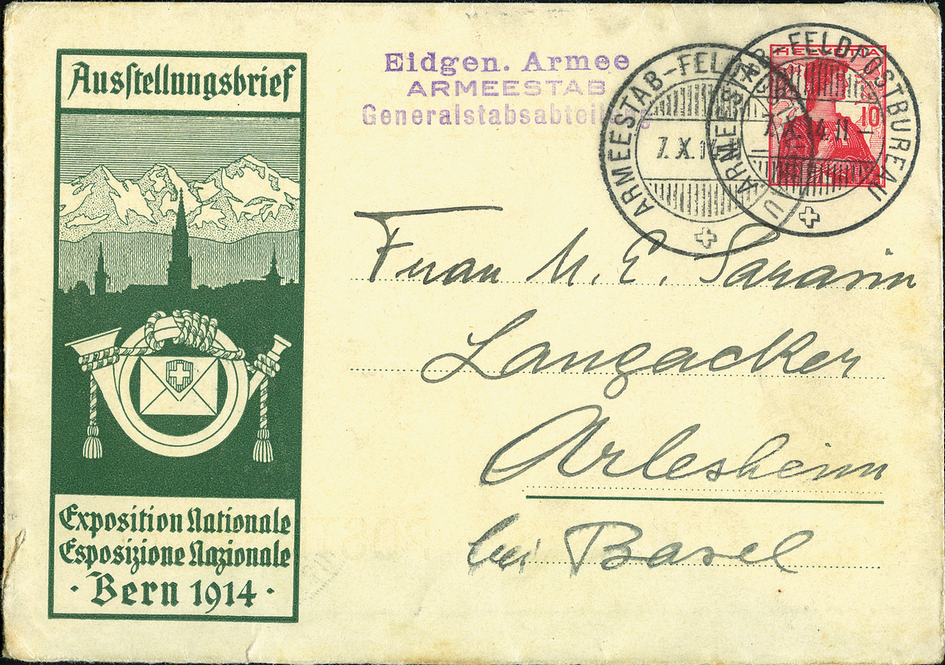 Ausstellungsbrief
Exposition Nationale
Esposizione Nazionale
· Bern 1914 ·
Eidgen. Armee
ARMEESTAB
Generalstabsabteil
ARMEESTAB-FELDPOSTBUREAU
7.X.14
ARMEESTAB-FELDPOSTBUREAU
7.X.14.11
HELVETIA
10
Frau M. E. Sarasin
Langacker
Arlesheim
bei Basel